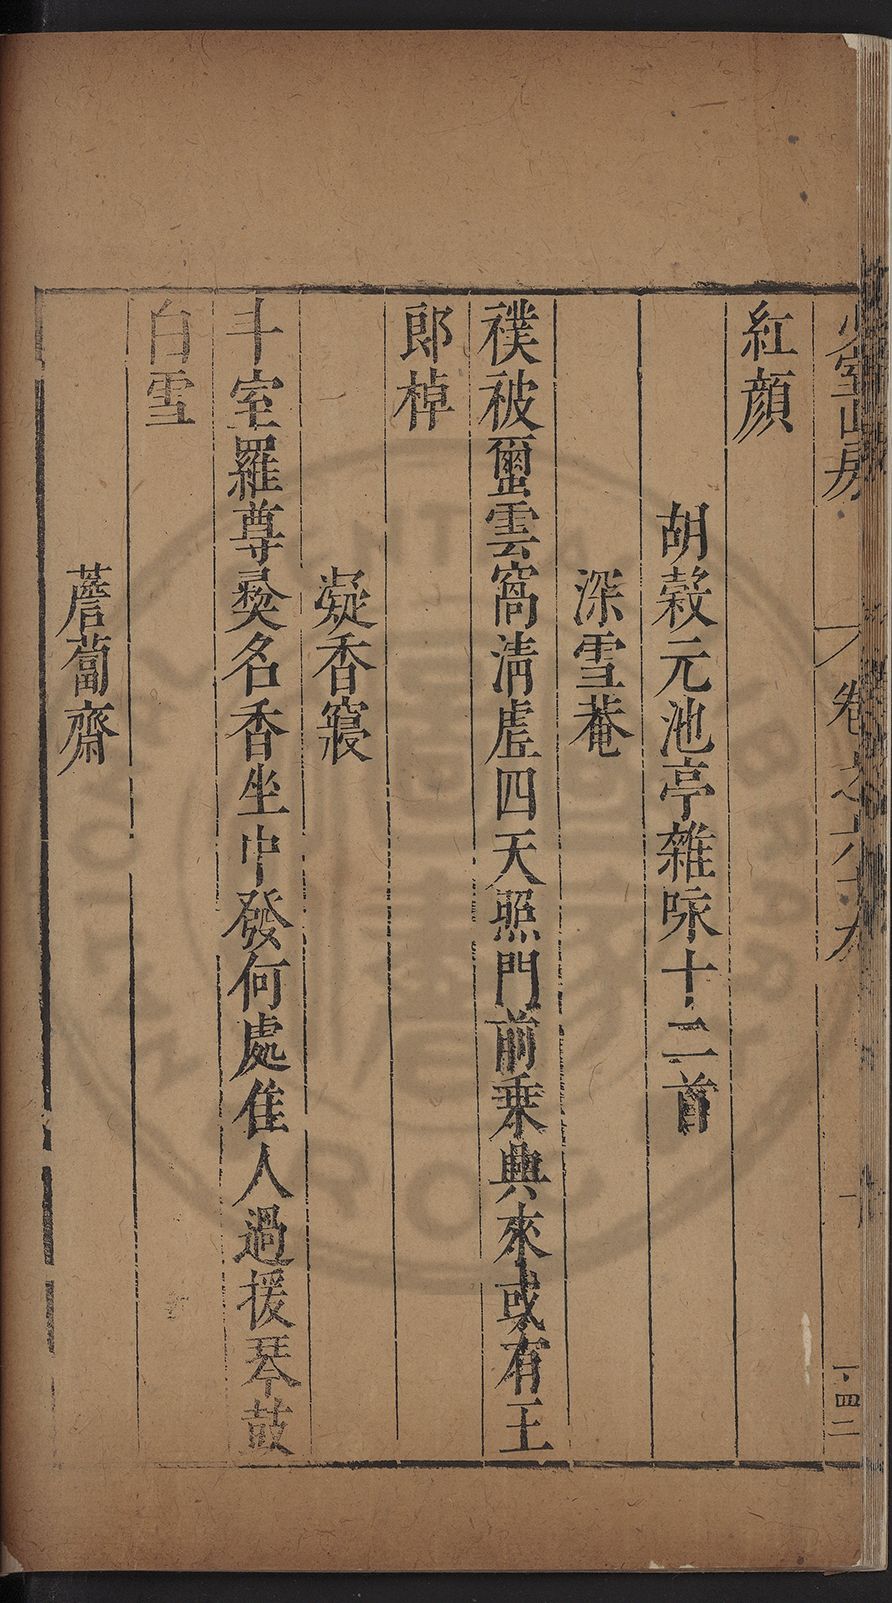 少室山房 卷之六十九
紅顏
胡穀元池亭雜咏十二首
深雪菴
襆被臥雲窩清虛四天照門前乘興來或有王
郎棹
凝香寢
斗室羅尊彝名香坐中發何處佳人過援琴鼓
白雪
薝蔔齋